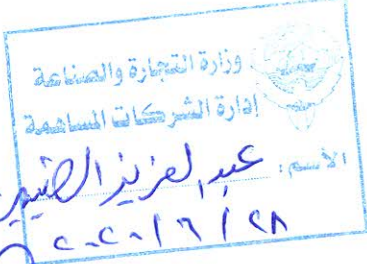 وزارة التجارة والصناعة
إدارة الشركات المساهمة
الأسم : عبدالعزيز
٢٨ / ٦ / ٢٠٢٠